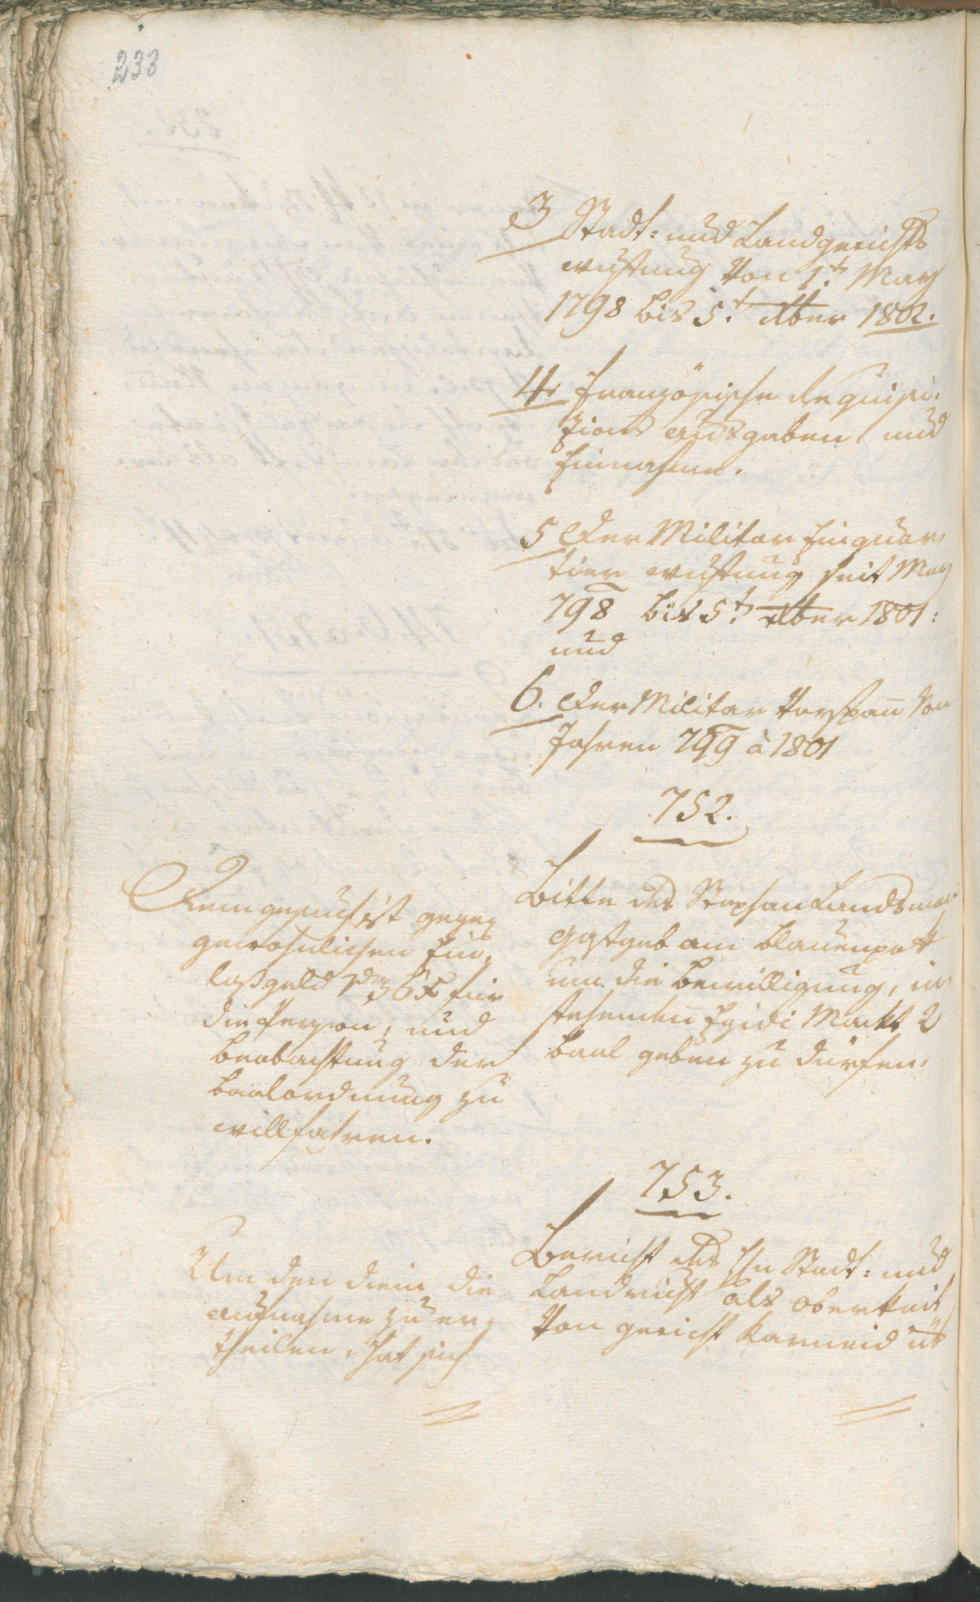 233
3 Stadt: und Landgerichts
raittung von 1.t May
1798 bis 5.t 8ber 1802.
4 Französische Requisi,
zions Ausgaben und
Einnahme.
5 Der Militar Einquar,
tier raittung seit May
798 bis 5.t 8ber 1801:
und
6. Der Militar Vorspañ von
Jahren 799 à 1801
752.
Bitte des Stephan Landsman
Gastgeb am blauen
um die Bewilligung, in
stehenden Egidi Markt 2
Baal geben zu dürfen.
Dem gesuch ist gegen
gewohnlichen Ein,
laßgeld pr 36 x für
die Person, und
beobachtung der
Baalordnung zu
willfahren.
753.
Bericht des Hn Stadt: und
Landricht als oberkeit
von gericht Karneid üb
Um den die
aufnahme zu er,
theilen, hat sich